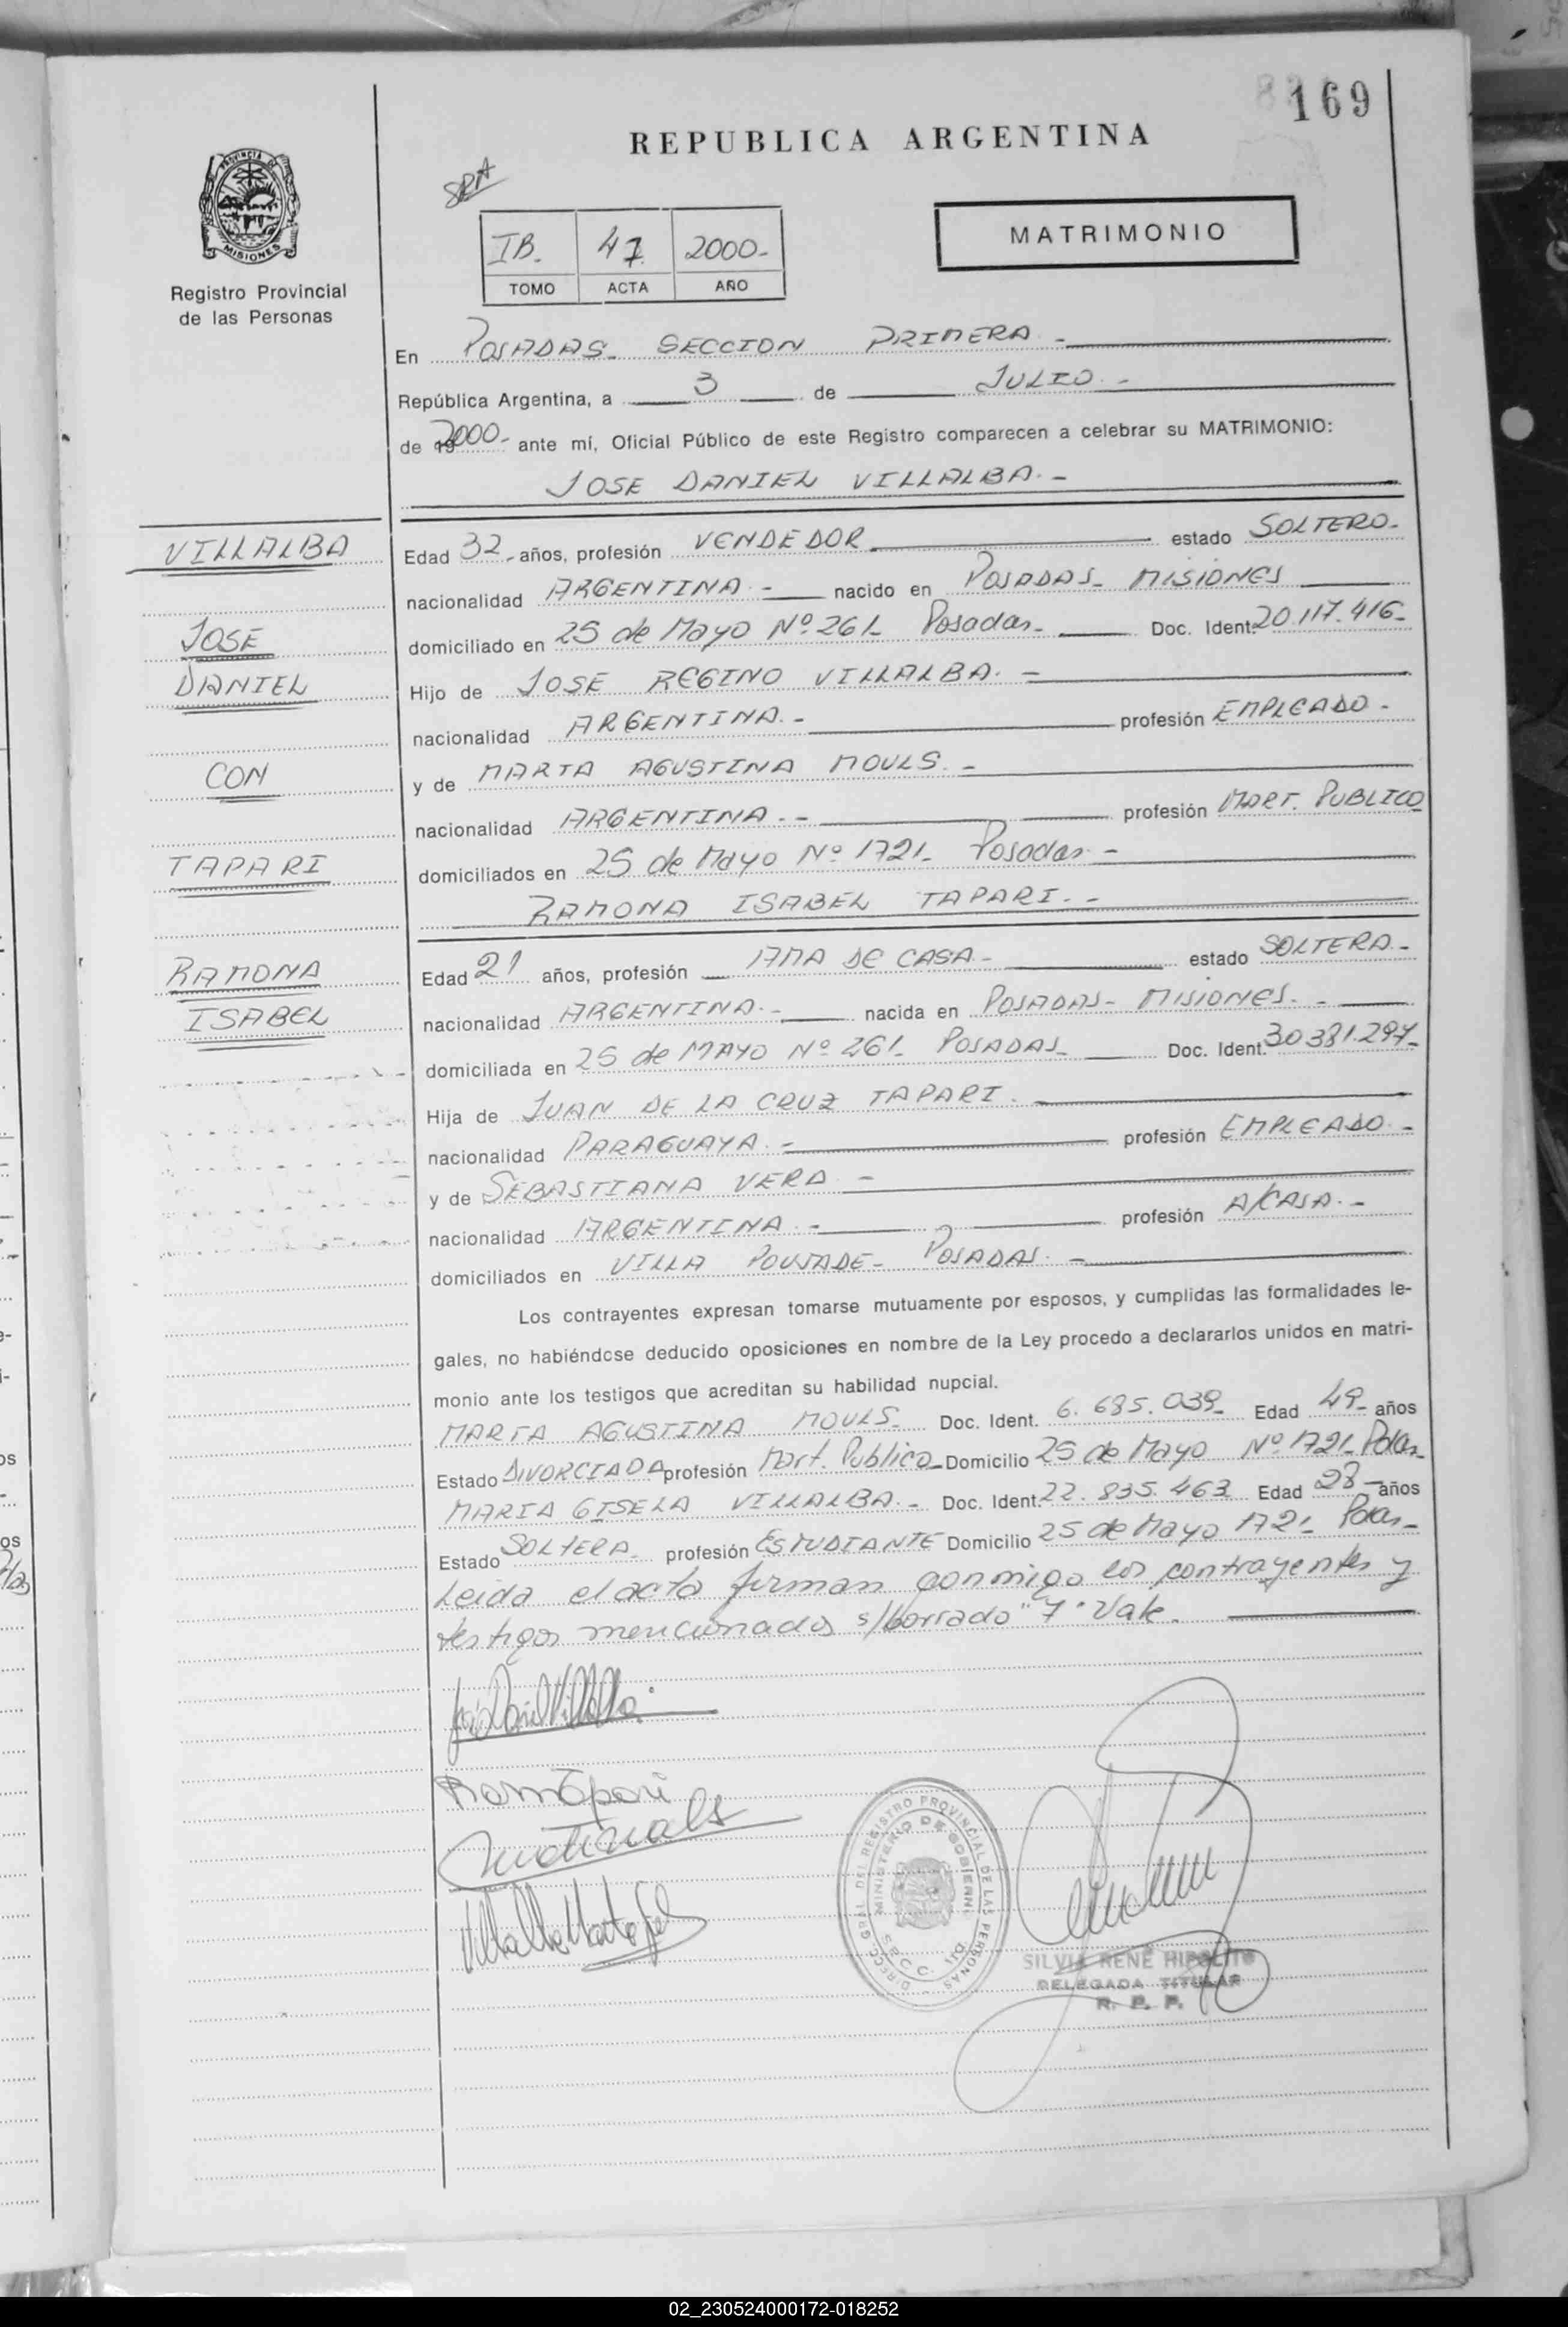 169
REPUBLICA ARGENTINA
PROVINCIA DE
MISIONES
Registro Provincial
de las Personas
IB. 47 2000-
TOMO ACTA AÑO
MATRIMONIO
En POSADAS- SECCION PRIMERA.-
República Argentina, a 3 de JULIO.-
de 19 2000- ante mí, Oficial Público de este Registro comparecen a celebrar su MATRIMONIO:
JOSE DANIEL VILLALBA.-
VILLALBA
JOSE
DANIEL
CON
TAPARI
RAMONA
ISABEL
Edad 32- años, profesión VENDEDOR estado SOLTERO-
nacionalidad ARGENTINA.- nacido en POSADAS- MISIONES
domiciliado en 25 de Mayo Nº 261- Posadas- Doc. Ident. 20.117.416-
Hijo de JOSE REGINO VILLALBA.-
nacionalidad ARGENTINA.- profesión EMPLEADO-
y de MARTA AGUSTINA MOULS.-
nacionalidad ARGENTINA.-- profesión MART. PUBLICO
domiciliados en 25 de Mayo Nº 1721- Posadas.-
RAMONA ISABEL TAPARI.--
Edad 21 años, profesión AMA DE CASA- estado SOLTERA.-
nacionalidad ARGENTINA.- nacida en POSADAS- MISIONES.-
domiciliada en 25 de MAYO Nº 261- POSADAS- Doc. Ident. 30381.297-
Hija de JUAN DE LA CRUZ TAPARI.
nacionalidad PARAGUAYA.- profesión EMPLEADO.-
y de SEBASTIANA VERA-
nacionalidad ARGENTINA.- profesión A/CASA.-
domiciliados en VILLA POUJADE- POSADAS.-
Los contrayentes expresan tomarse mutuamente por esposos, y cumplidas las formalidades le-
gales, no habiéndose deducido oposiciones en nombre de la Ley procedo a declararlos unidos en matri-
monio ante los testigos que acreditan su habilidad nupcial.
MARTA AGUSTINA MOULS- Doc. Ident. 6.685.039- Edad 49- años
Estado DIVORCIADA profesión Mart. Publico- Domicilio 25 de Mayo Nº 1721- Pdas-
MARIA GISELA VILLALBA.- Doc. Ident. 22.835.463 Edad 28- años
Estado SOLTERA- profesión ESTUDIANTE Domicilio 25 de Mayo 1721- Pdas-
Leida el acta firman conmigo los contrayentes y
testigos mencionados s/borrado "7" Vale.
DIRECC. GRAL. DEL REGISTRO PROVINCIAL DE LAS PERSONAS
MINISTERIO DE GOBIERNO
SILVIA RENÉ HIPOLITO
DELEGADA TITULAR
R. P. P.
02_230524000172-018252